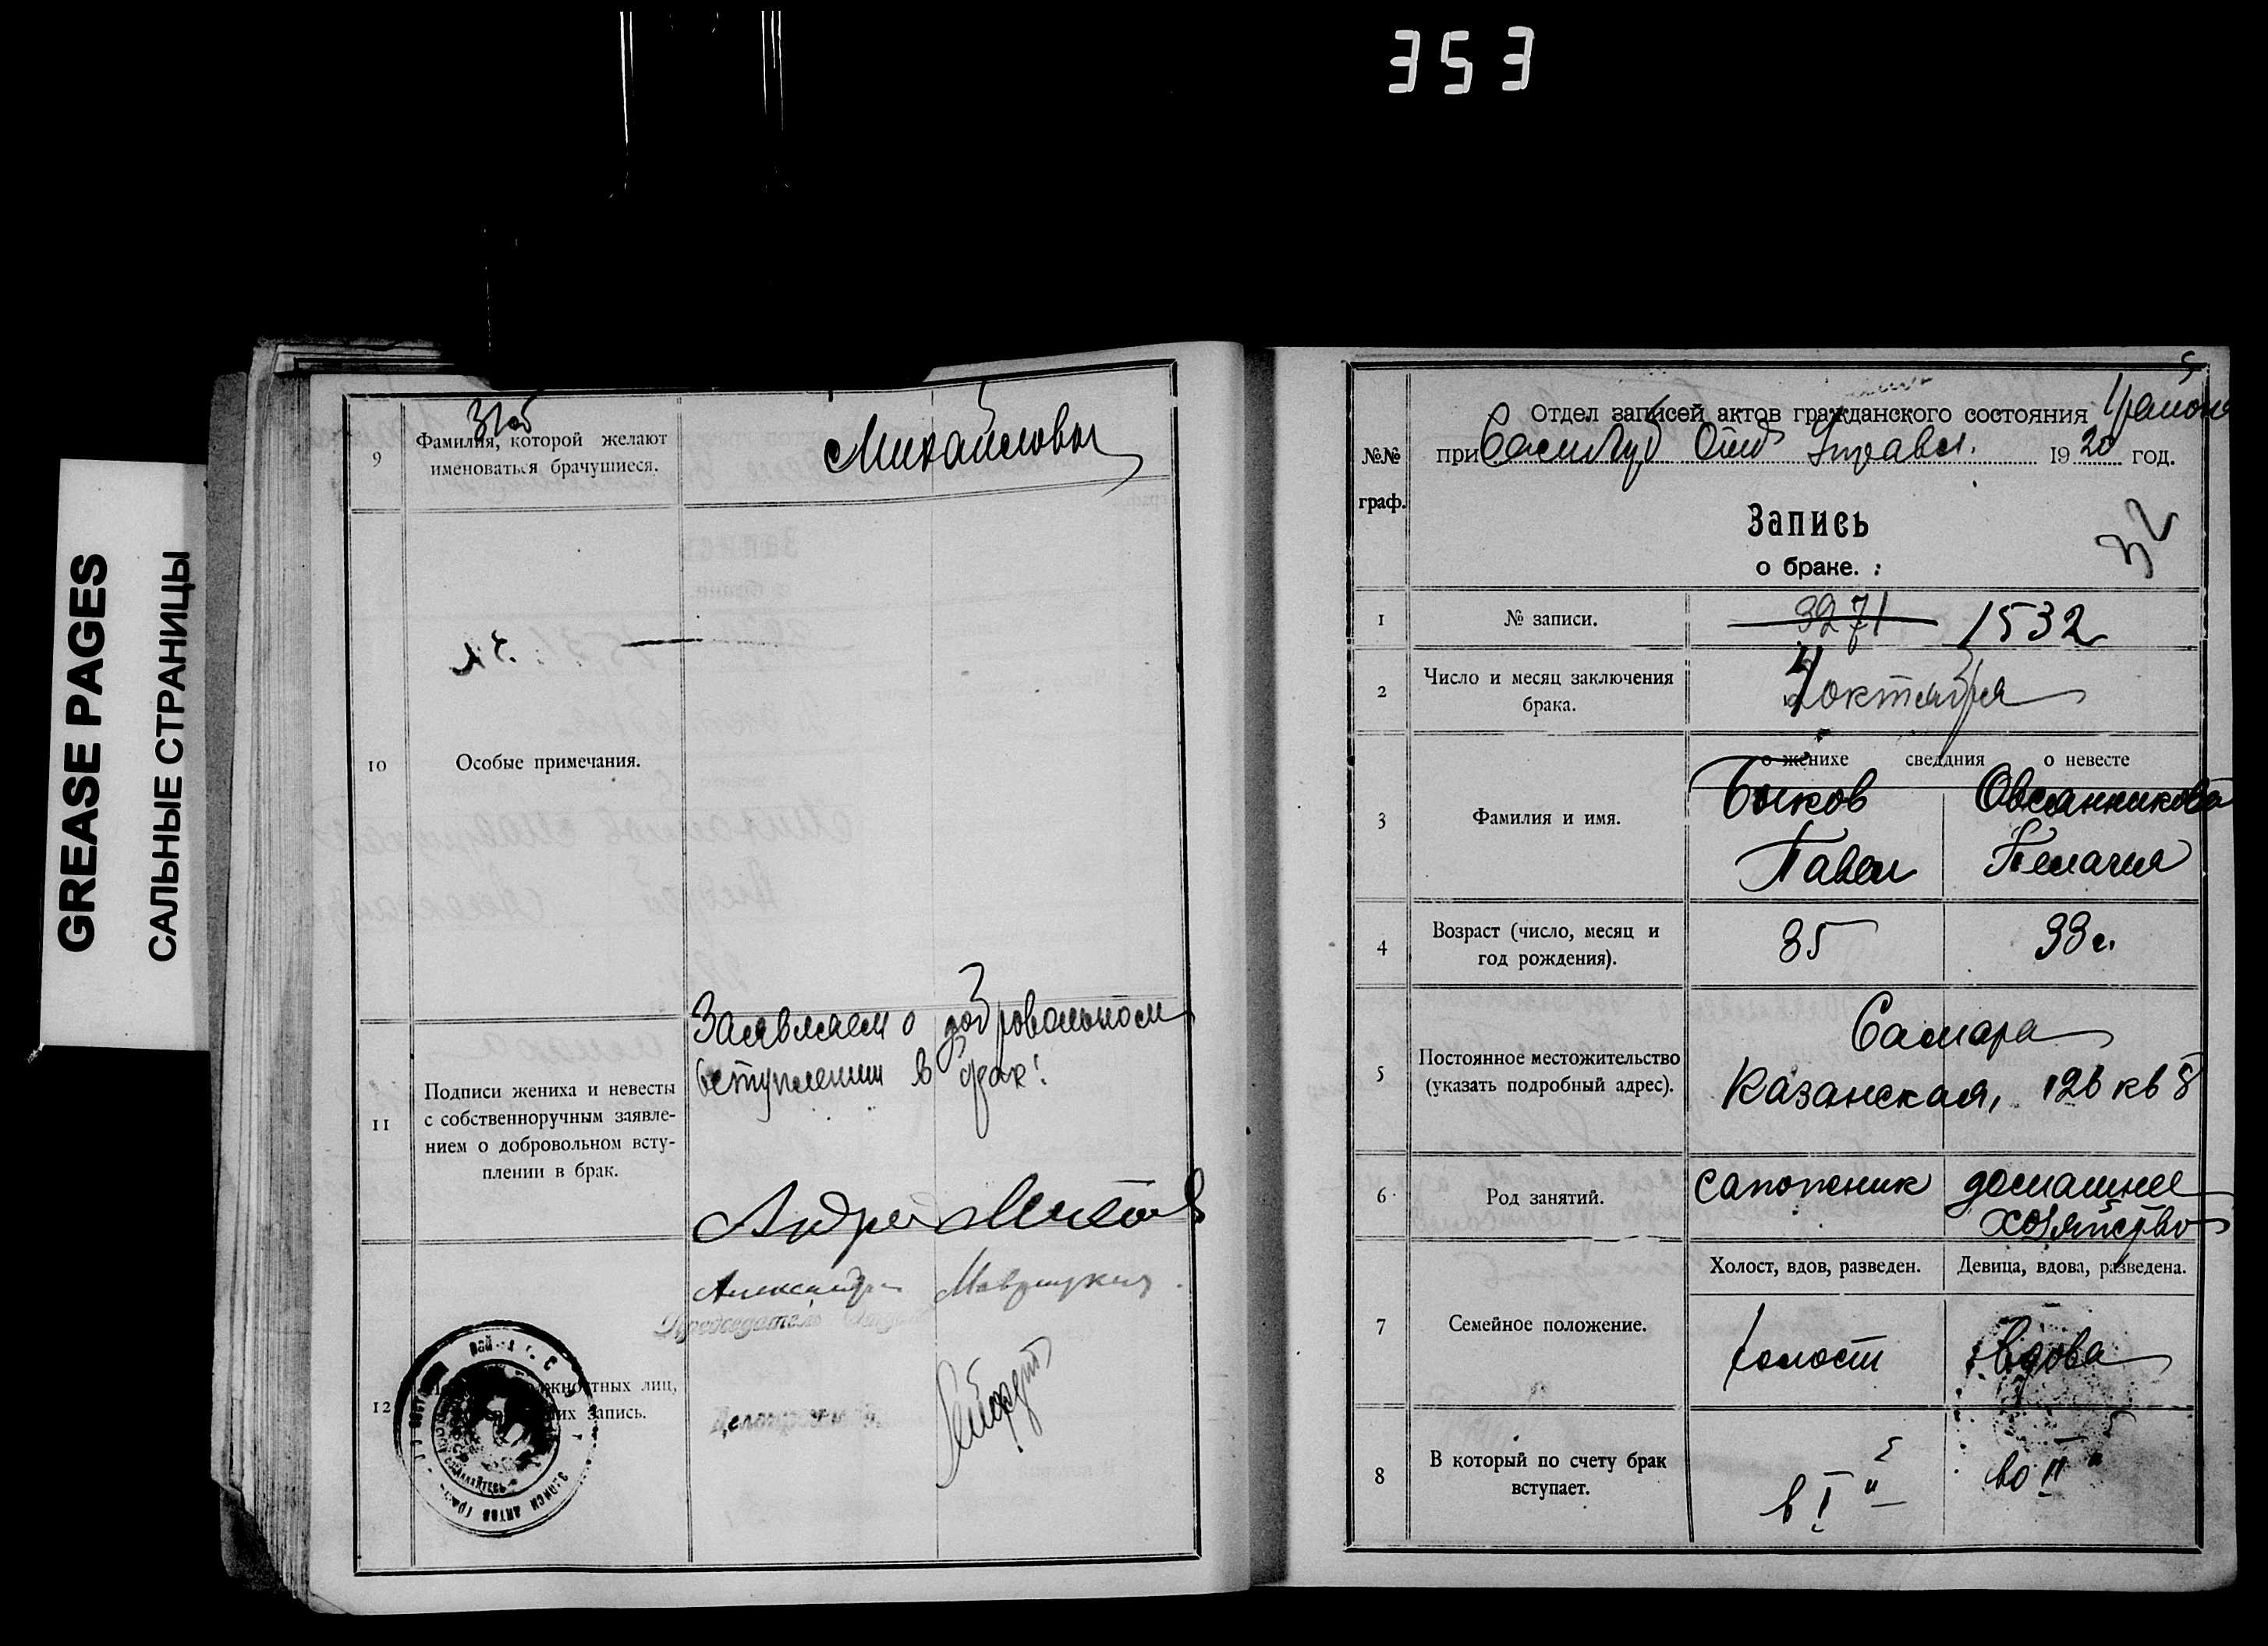 353
GREASE PAGES
САЛЬНЫЕ СТРАНИЦЫ
31об
9
Фамилия, которой желают
именоваться брачущиеся.
Михайловы
10
Особые примечания.
11
Подписи жениха и невесты
с собственноручным заявле-
нием о добровольном всту-
плении в брак.
Заявляем о добровольном
вступлении в брак:
Андрей
Александра Маврицкая.
Председатель
12
должностных лиц,
запись.
№№
граф.
Отдел записей актов гражданского состояния
при Самгуб Отд Управл. 1920 год.
Запись
о браке.
32
1
№ записи.
3271 1532
2
Число и месяц заключения
брака.
4 октября
о женихе сведдния о невесте
3
Фамилия и имя.
Быков Овсянникова
Павел Пелагия
4
Возраст (число, месяц и
год рождения).
35 33 г.
5
Постоянное местожительство
(указать подробный адрес).
Самара
Казанская, 126 кв 8
6
Род занятий.
сапожник домашнее
хозяйство
7
Семейное положение.
Холост, вдов, разведен. Девица, вдова, разведена.
холост вдова
8
В который по счету брак
вступает.
в I во II